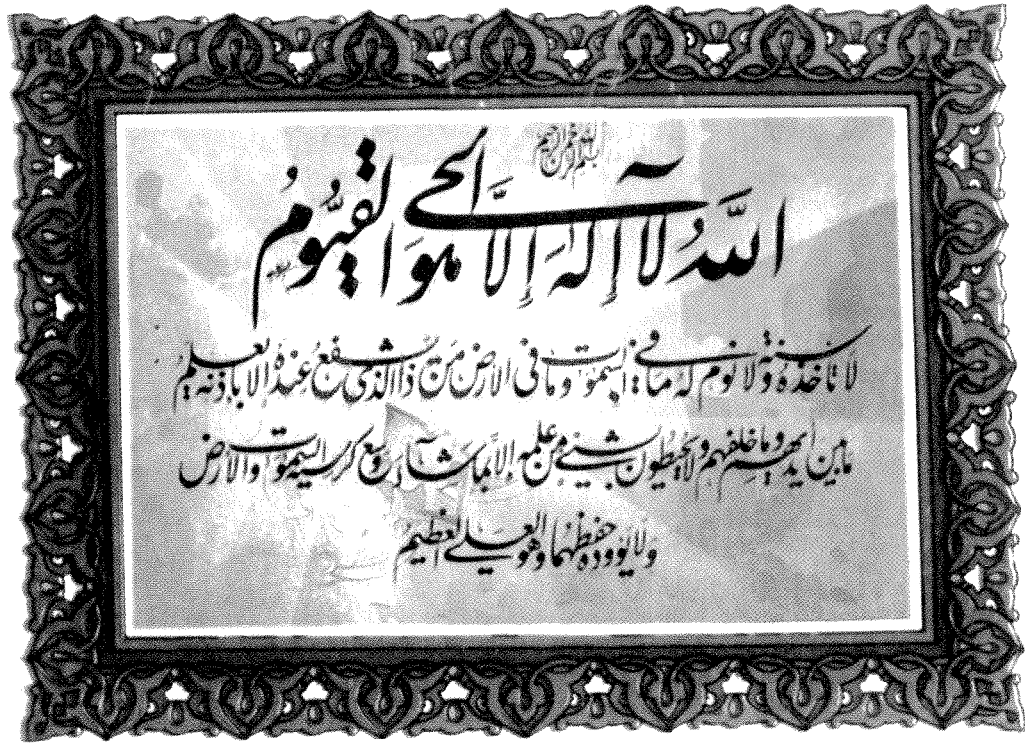 بسم الله الرحمن الرحیم
اللّٰهُ لَآ اِلٰهَ اِلَّا هُوَ الْحَیُّ الْقَیُّومُ
لا تاخذه سنة ولا نوم له ما فی السموت وما فی الارض من ذا الذی یشفع عنده الا باذنه یعلم
ما بین ایدیهم وما خلفهم ولا یحیطون بشیء من علمه الا بما شآء وسع کرسیه السموت والارض
ولا یؤوده حفظهما وهو العلی العظیم